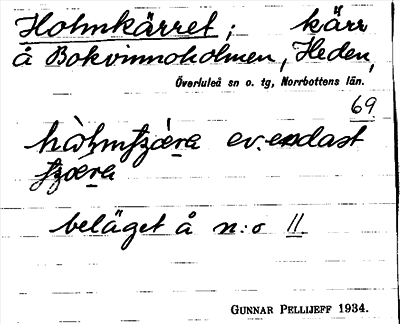 Holmkärret; kärr
å Bokvinnoholmen, Heden,
Överluleå sn o. tg, Norrbottens län.
69
ev. endast
beläget å n:o 11
GUNNAR PELLIJEFF 1934.